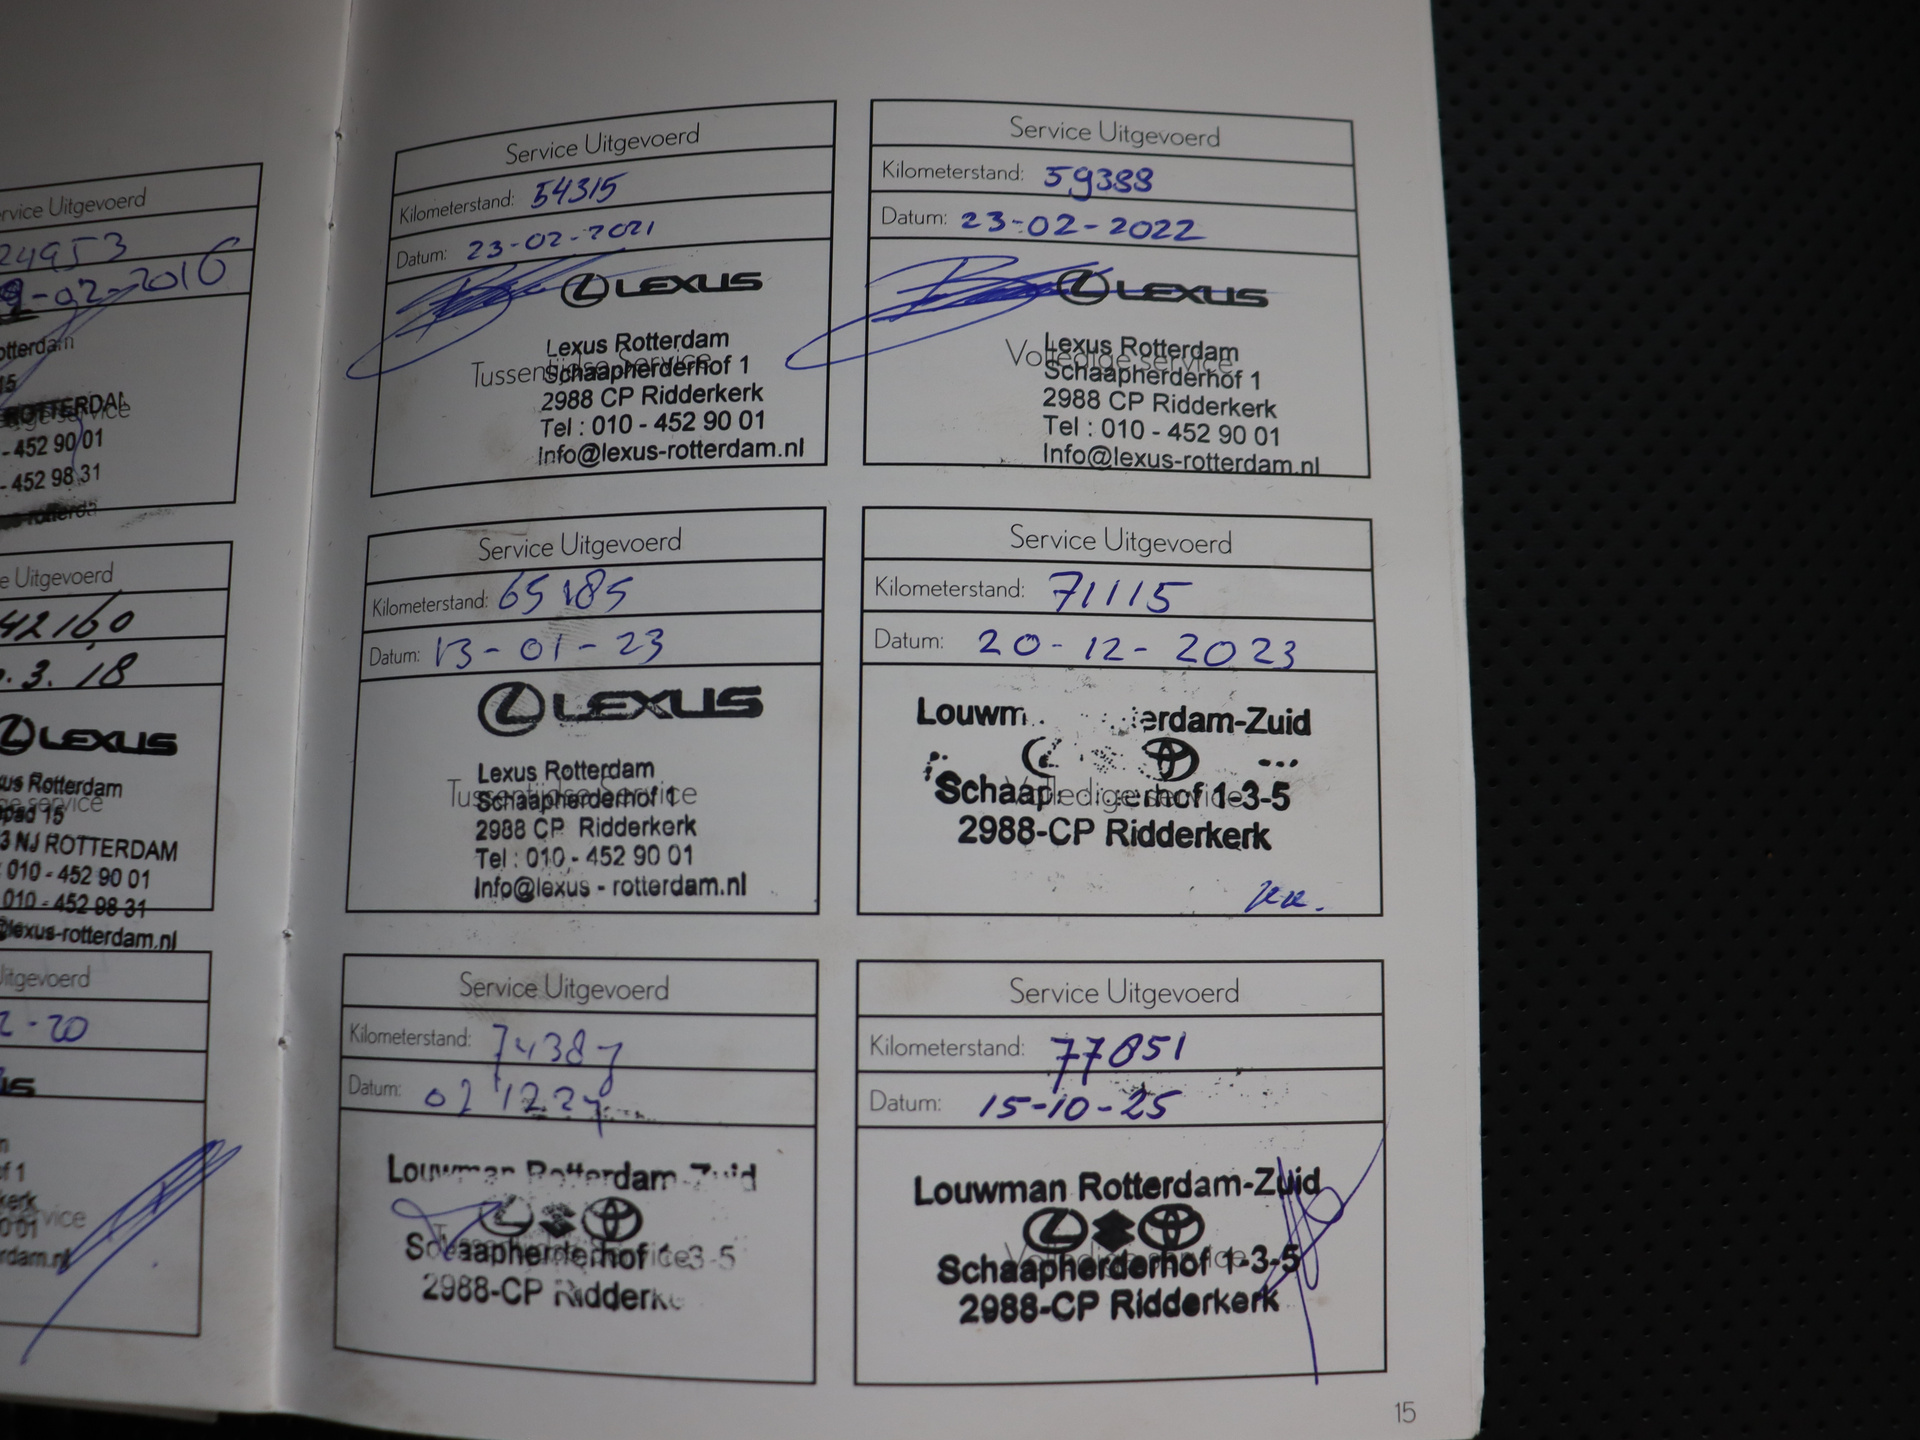 Uitgevoerd
24953
-02-2016
452 90 01
- 452 98 31
Uitgevoerd
42160
3. 18
LEXUS
Rotterdam
15
NJ ROTTERDAM
010 - 452 90 01
010 - 452 98 31
lexus-rotterdam.nl
-20
Service Uitgevoerd
Kilometerstand: 54315
Datum: 23-02-2021
LEXUS
Lexus Rotterdam
Tussentijdse Service
Schaapherderhof 1
2988 CP Ridderkerk
Tel : 010 - 452 90 01
Info@lexus-rotterdam.nl
Service Uitgevoerd
Kilometerstand: 59388
Datum: 23-02-2022
LEXUS
Lexus Rotterdam
Volledige service
Schaapherderhof 1
2988 CP Ridderkerk
Tel : 010 - 452 90 01
Info@lexus-rotterdam.nl
Service Uitgevoerd
Kilometerstand: 65185
Datum: 13-01-23
LEXUS
Lexus Rotterdam
Tussentijdse Service
Schaapherderhof 1
2988 CP Ridderkerk
Tel : 010 - 452 90 01
Info@lexus - rotterdam.nl
Service Uitgevoerd
Kilometerstand: 71115
Datum: 20-12-2023
Louwm erdam-Zuid
Volledige service
Schaap erhof 1-3-5
2988-CP Ridderkerk
Service Uitgevoerd
Kilometerstand:
Datum:
Louwman Rotterdam-Zuid
Schaapherderhof 1-3-5
2988-CP Ridderke
Service Uitgevoerd
Kilometerstand: 77851
Datum: 15-10-25
Louwman Rotterdam-Zuid
Volledige service
Schaapherderhof 1-3-5
2988-CP Ridderkerk
15